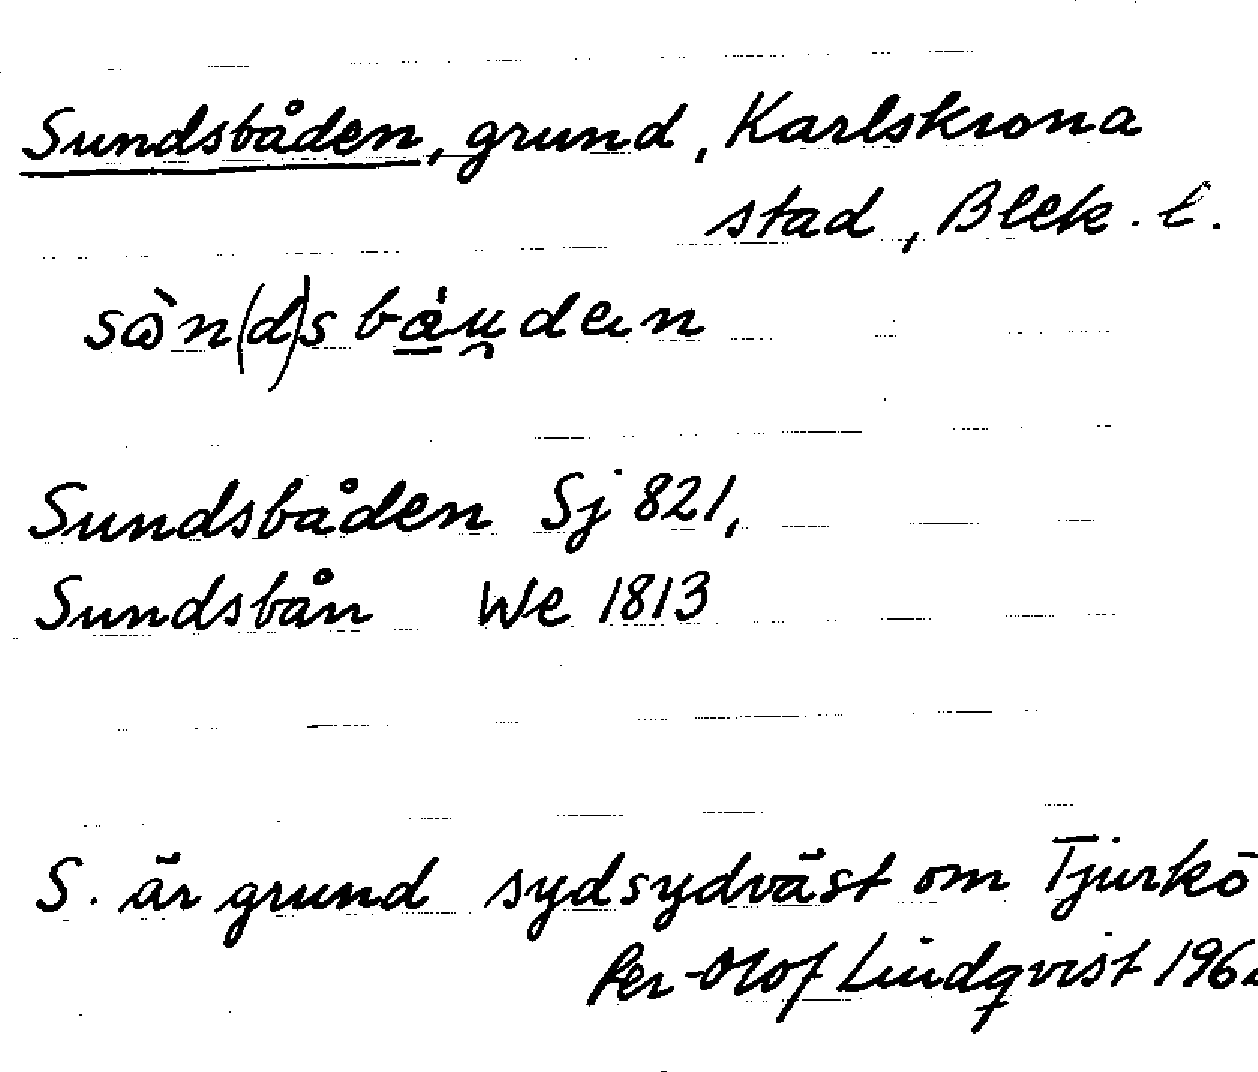 Sundsbåden, grund, Karlskrona
stad, Blek. l.
sɷ̀n(d)sbáu̯dɐn
Sundsbåden Sj 821,
Sundsbån We 1813
S. är grund sydsydväst om Tjurkö
Per-Olof Lindqvist